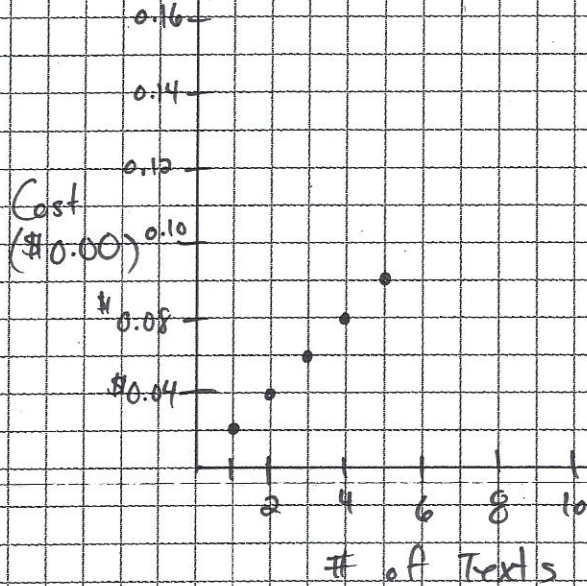 0.16
0.14
0.12
Cost
($0.00) 0.10
$0.08
$0.04
2 4 6 8 10
# of Texts